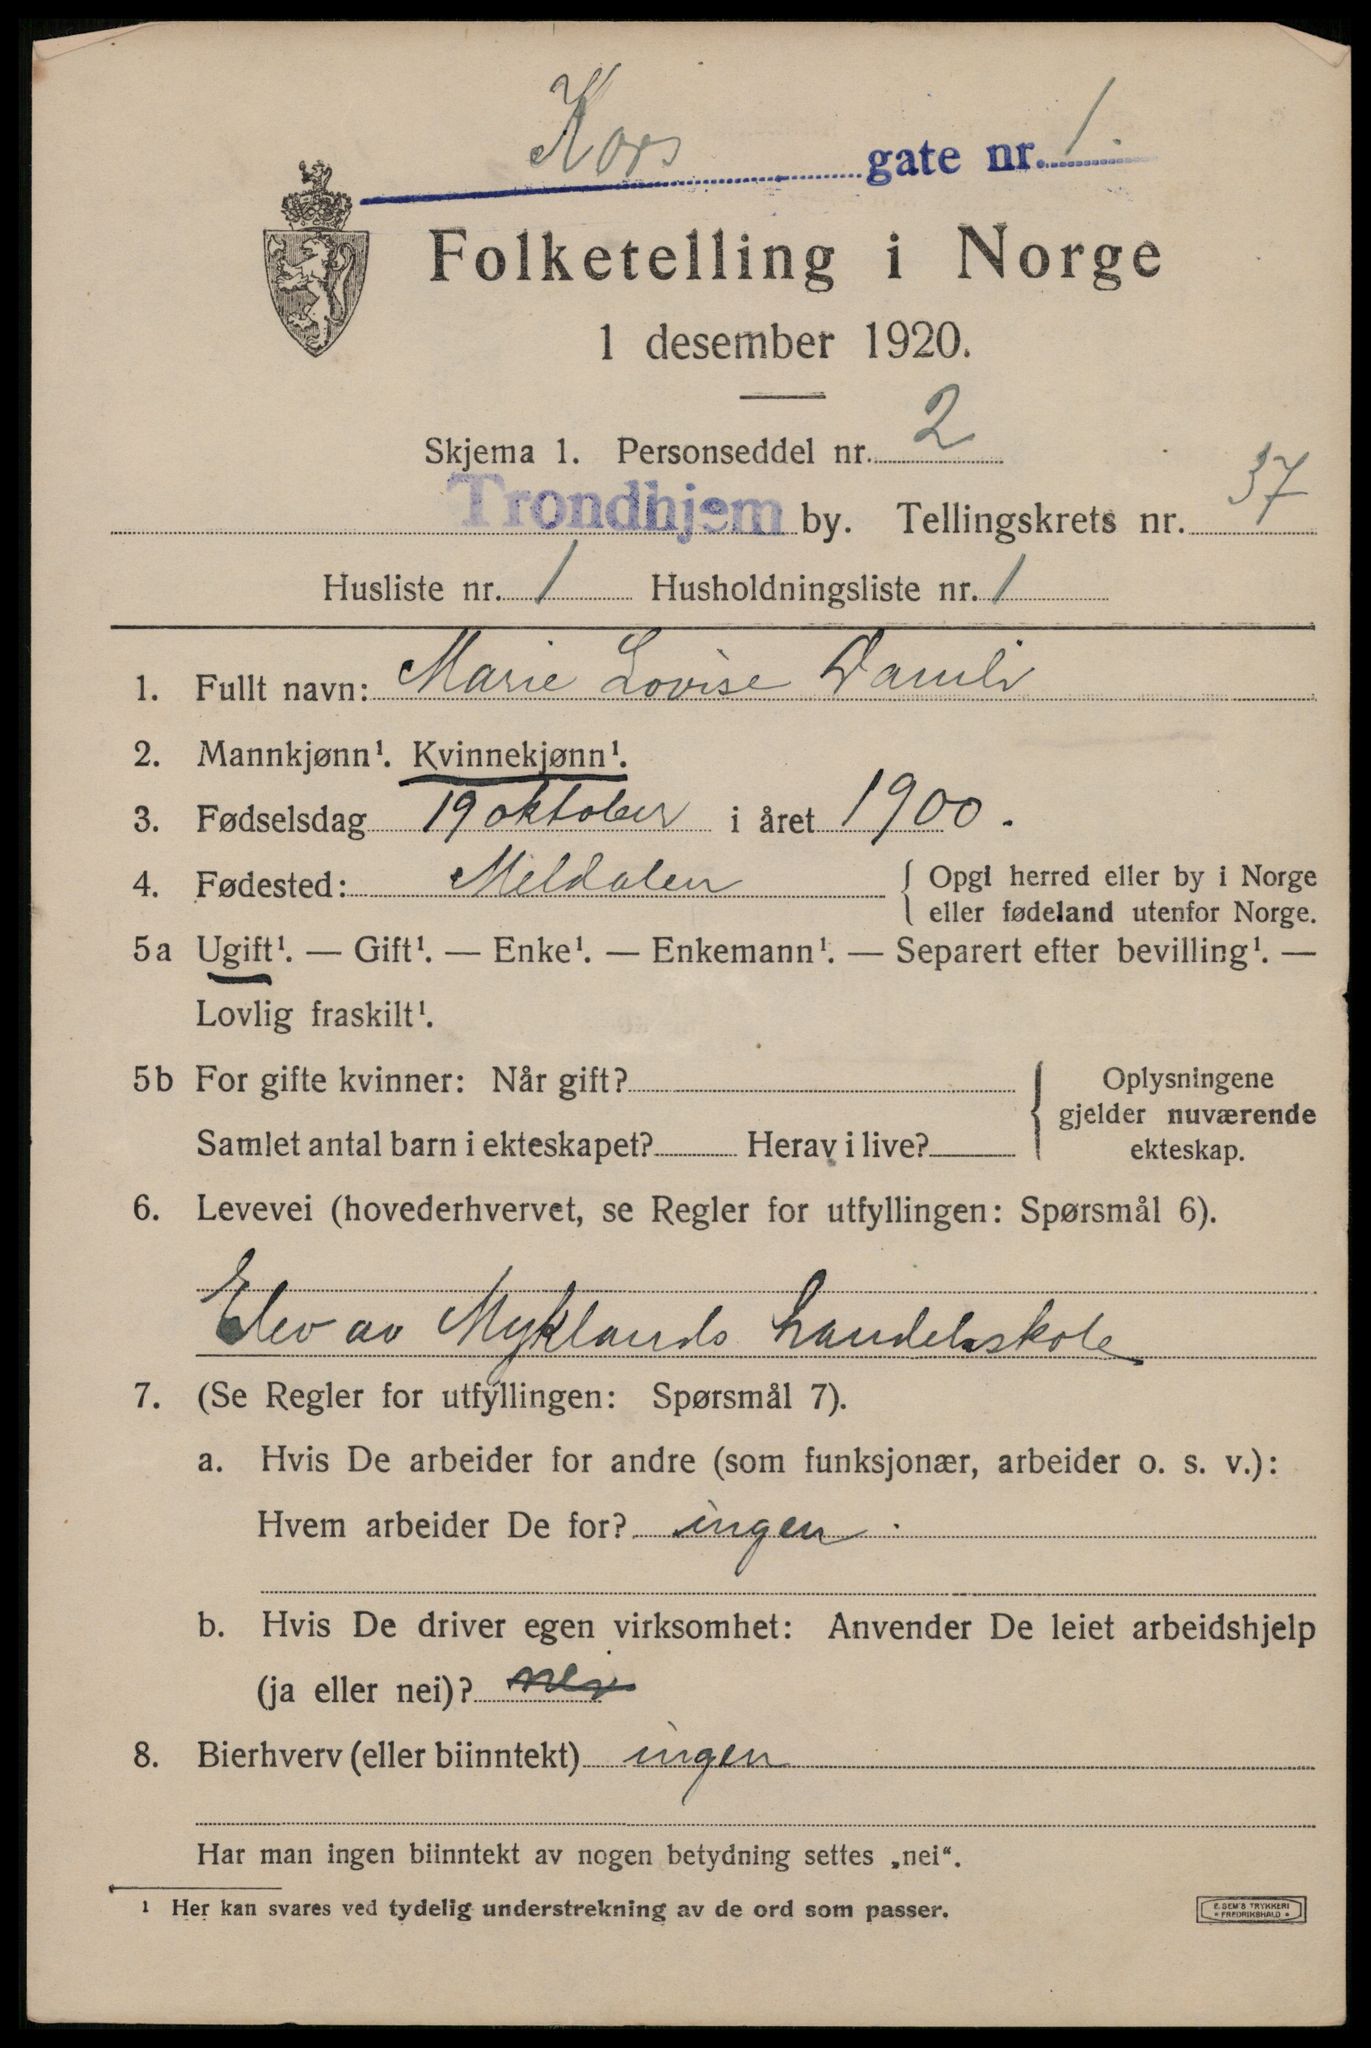 Kors gate nr. 1.
Folketelling i Norge
1 desember 1920.
Skjema 1. Personseddel nr. 2
Trondhjem by. Tellingskrets nr. 37
Husliste nr. 1 Husholdningsliste nr. 1
1. Fullt navn: Marie Lovise Damli
2. Mannkjønn¹. Kvinnekjønn¹.
3. Fødselsdag 19 oktober i året 1900.
4. Fødested: Meldalen { Opgi herred eller by i Norge
eller fødeland utenfor Norge.
5a Ugift¹. — Gift¹. — Enke¹. — Enkemann¹. — Separert efter bevilling¹. —
Lovlig fraskilt¹.
5b For gifte kvinner: Når gift? { Oplysningene
gjelder nuværende
Samlet antal barn i ekteskapet? Herav i live? ekteskap.
6. Levevei (hovederhvervet, se Regler for utfyllingen: Spørsmål 6).
Elev av Myklands handelsskole
7. (Se Regler for utfyllingen: Spørsmål 7).
a. Hvis De arbeider for andre (som funksjonær, arbeider o. s. v.):
Hvem arbeider De for? ingen.
b. Hvis De driver egen virksomhet: Anvender De leiet arbeidshjelp
(ja eller nei)? nei
8. Bierhverv (eller biinntekt) ingen
Har man ingen biinntekt av nogen betydning settes „nei“.
¹ Her kan svares ved tydelig understrekning av de ord som passer.
E. SEM'S TRYKKERI
* FREDRIKSHALD *